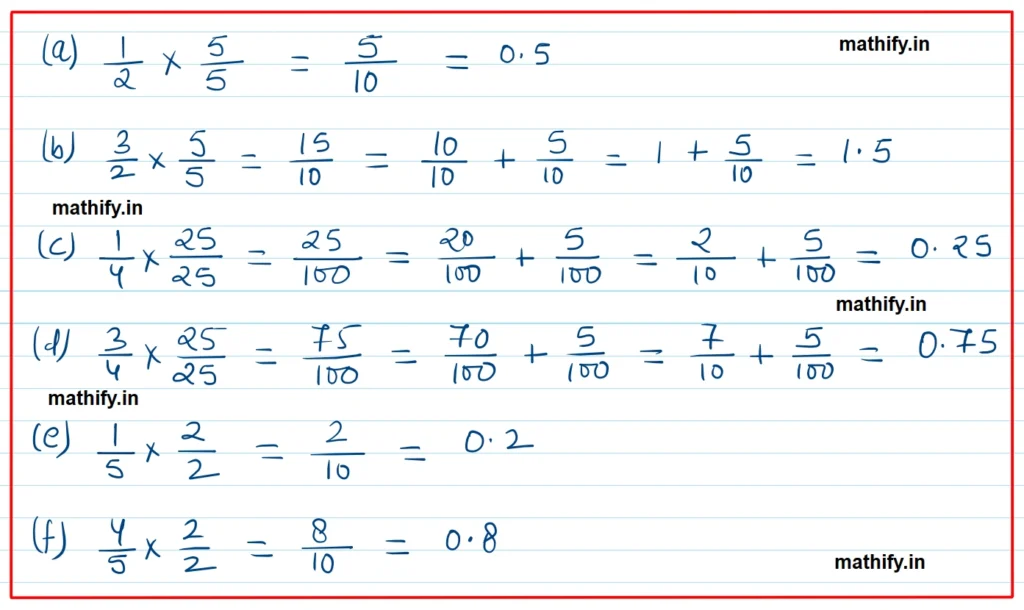 (a) 1/2 × 5/5 = 5/10 = 0.5
mathify.in
(b) 3/2 × 5/5 = 15/10 = 10/10 + 5/10 = 1 + 5/10 = 1.5
mathify.in
(c) 1/4 × 25/25 = 25/100 = 20/100 + 5/100 = 2/10 + 5/100 = 0.25
mathify.in
(d) 3/4 × 25/25 = 75/100 = 70/100 + 5/100 = 7/10 + 5/100 = 0.75
mathify.in
(e) 1/5 × 2/2 = 2/10 = 0.2
(f) 4/5 × 2/2 = 8/10 = 0.8
mathify.in